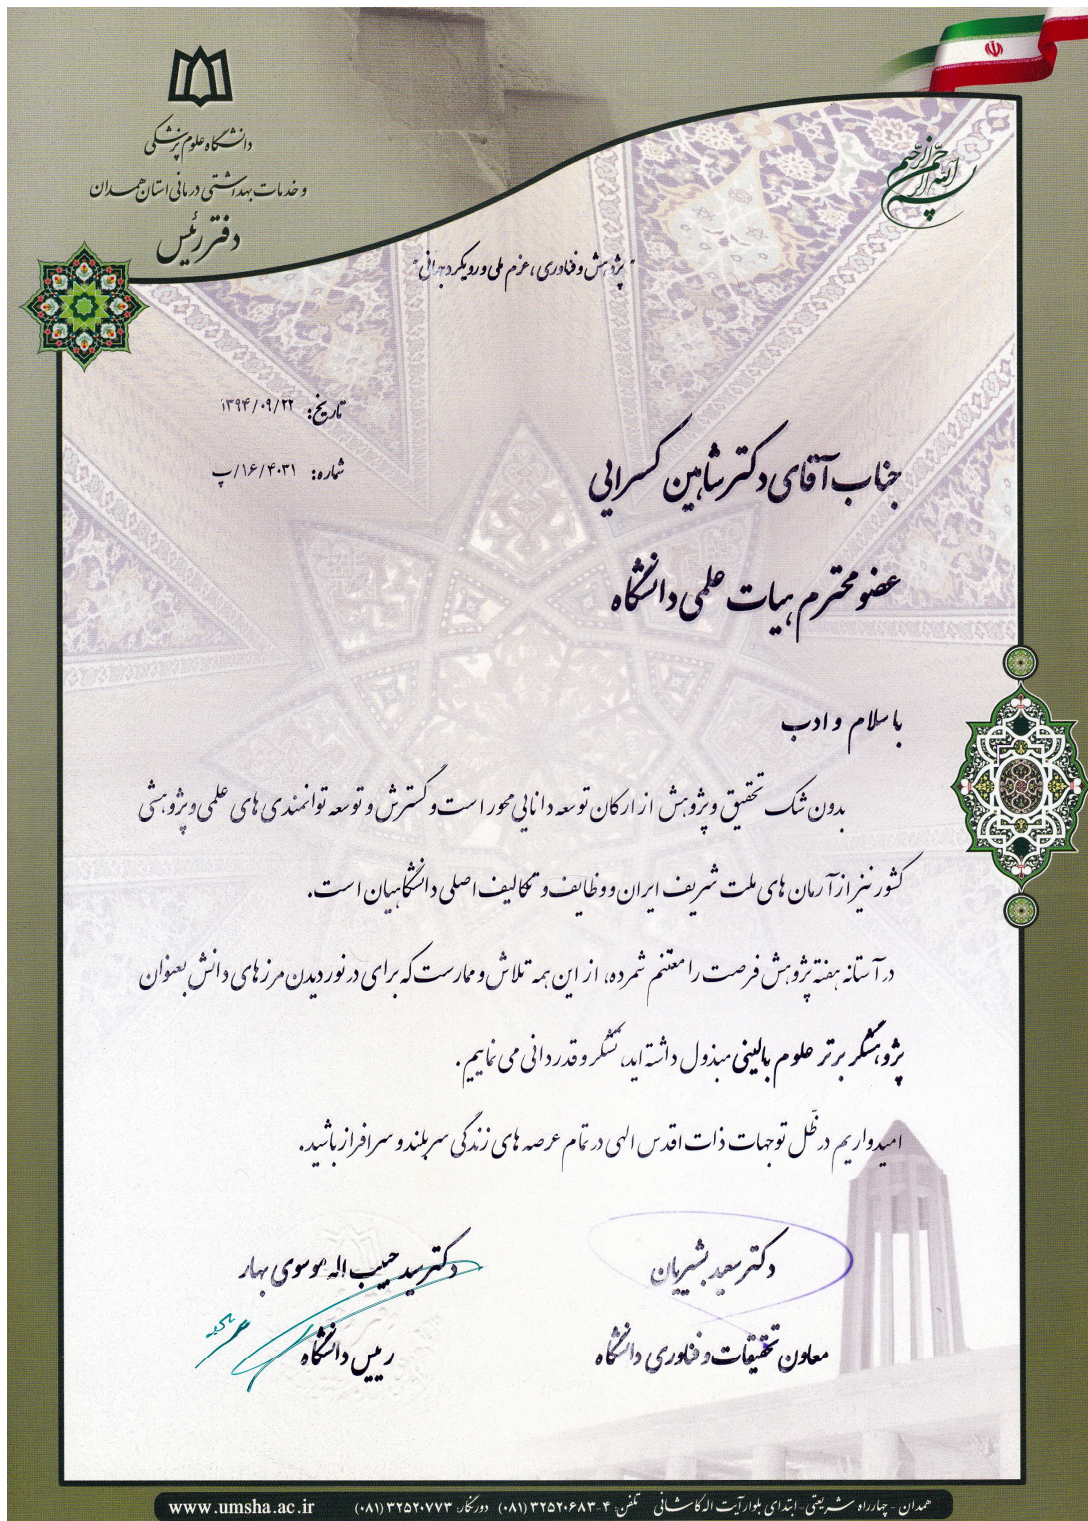 بسم الله الرحمن الرحیم
دانشگاه علوم پزشکی
و خدمات بهداشتی درمانی استان همدان
دفتر رئیس
"پژوهش و فناوری، عزم ملی و رویکرد جهانی"
تاریخ: ۱۳۹۴/۰۹/۲۲
شماره: ۱۶/۴۰۳۱/پ
جناب آقای دکتر شاهین کسرایی
عضو محترم هیات علمی دانشگاه
با سلام و ادب
بدون شک تحقیق و پژوهش از ارکان توسعه دانایی محور است و گسترش و توسعه توانمندی های علمی و پژوهشی
کشور نیز از آرمان های ملت شریف ایران و وظایف و تکالیف اصلی دانشگاهیان است.
در آستانه هفته پژوهش فرصت را مغتنم شمرده، از این همه تلاش و ممارست که برای در نوردیدن مرزهای دانش بعنوان
پژوهشگر برتر علوم بالینی مبذول داشته اید، تشکر و قدردانی می نماییم.
امیدواریم در ظّل توجهات ذات اقدس الهی در تمام عرصه های زندگی سربلند و سرافراز باشید.
دکتر سعید بشیریان
معاون تحقیقات و فناوری دانشگاه
دکتر سید حبیب اله موسوی بهار
رییس دانشگاه
همدان - چهارراه شریعتی - ابتدای بلوار آیت اله کاشانی تلفن: ۴-۳۲۵۲۰۶۸۳ (۰۸۱) دورنگار: ۳۲۵۲۰۷۷۳ (۰۸۱) www.umsha.ac.ir